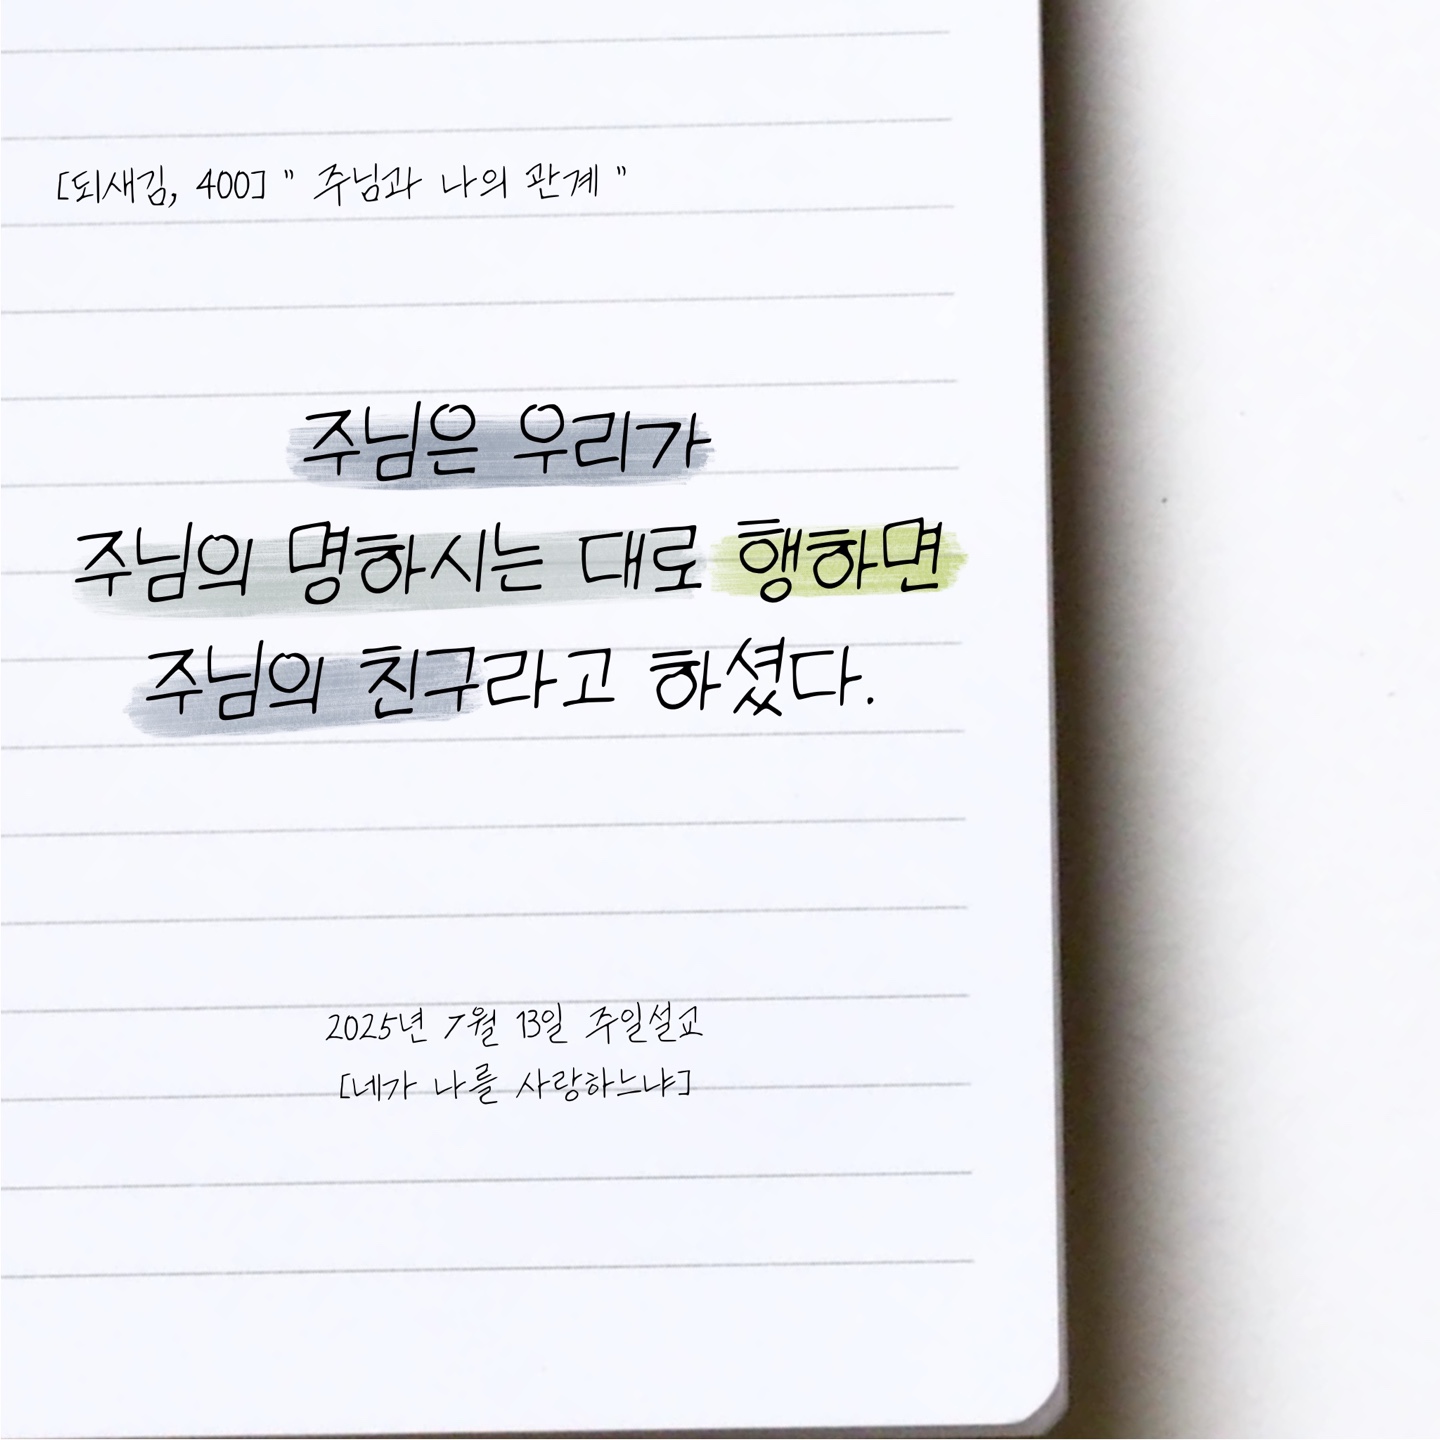 [되새김, 400] " 주님과 나의 관계 "
주님은 우리가
주님의 명하시는 대로 행하면
주님의 친구라고 하셨다.
2025년 7월 13일 주일설교
[네가 나를 사랑하느냐]